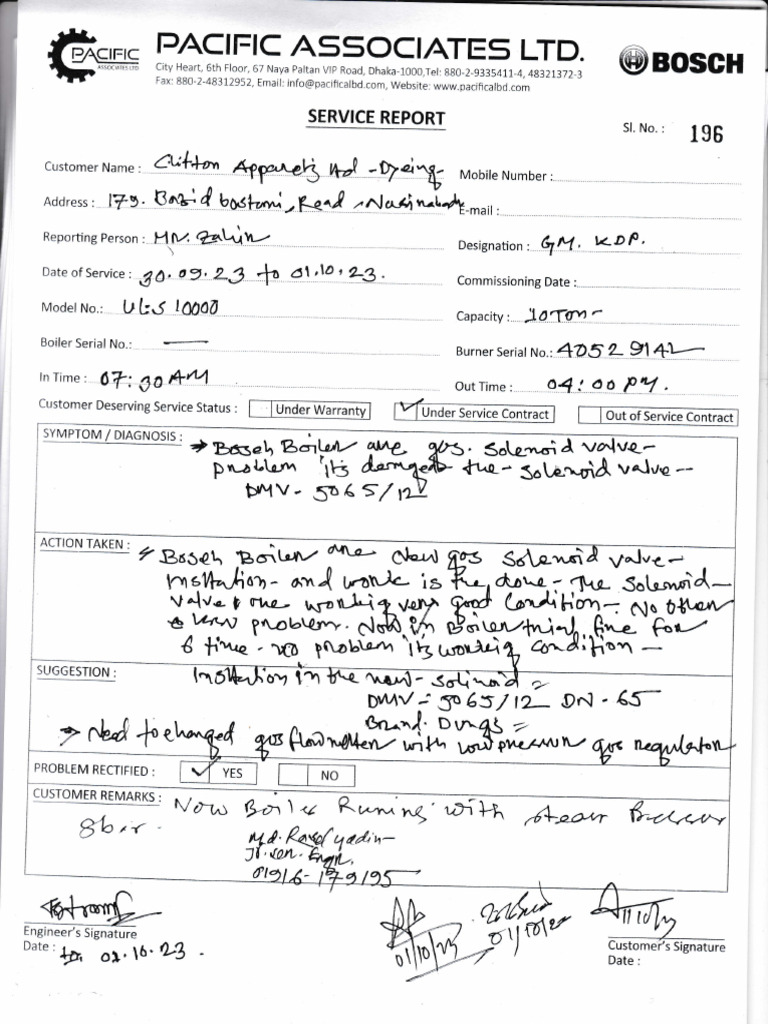 PACIFIC
ASSOCIATES LTD
PACIFIC ASSOCIATES LTD.
City Heart, 6th Floor, 67 Naya Paltan VIP Road, Dhaka-1000,Tel: 880-2-9335411-4, 48321372-3
Fax: 880-2-48312952, Email: info@pacificalbd.com, Website: www.pacificalbd.com
BOSCH
SERVICE REPORT
Sl. No. : 196
Customer Name : Clifton Apparels ltd - Dyeing
Mobile Number :
Address : 179. Bazid bostami, Road, Nasirabad
E-mail :
Reporting Person : Mr. Zahin
Designation : GM. KDP.
Date of Service : 30.09.23 to 01.10.23.
Commissioning Date :
Model No.: UL-S 10000
Capacity : 10 Ton-
Boiler Serial No.: —
Burner Serial No.: 40529142
In Time : 07:30 AM
Out Time : 04:00 PM.
Customer Deserving Service Status : Under Warranty ✓ Under Service Contract Out of Service Contract
SYMPTOM / DIAGNOSIS : → Bosch Boiler are gas. Solenoid valve-
problem its damaged the - solenoid valve --
DMV - 5065/12
ACTION TAKEN : Bosch Boiler are New gas solenoid valve-
and work is the done - The Solenoid-
valve are working very good Condition - No other
problem. Now in Boiler trial fine for
6 time - no problem its working condition -
SUGGESTION : in the new - solinoid =
DMV = 5065/12 DN - 65
Brand. Dungs =
→ Need to changed gas flow metter with low pressure gas regulator
PROBLEM RECTIFIED : ✓ YES NO
CUSTOMER REMARKS : Now Boiler Runing with steam Pressure
8 bir.
Md.
Jr. sen. Engr.
01916-179195
Engineer's Signature
Date : 01.10.23.
01/10/23
01/10/23
Customer's Signature
Date :